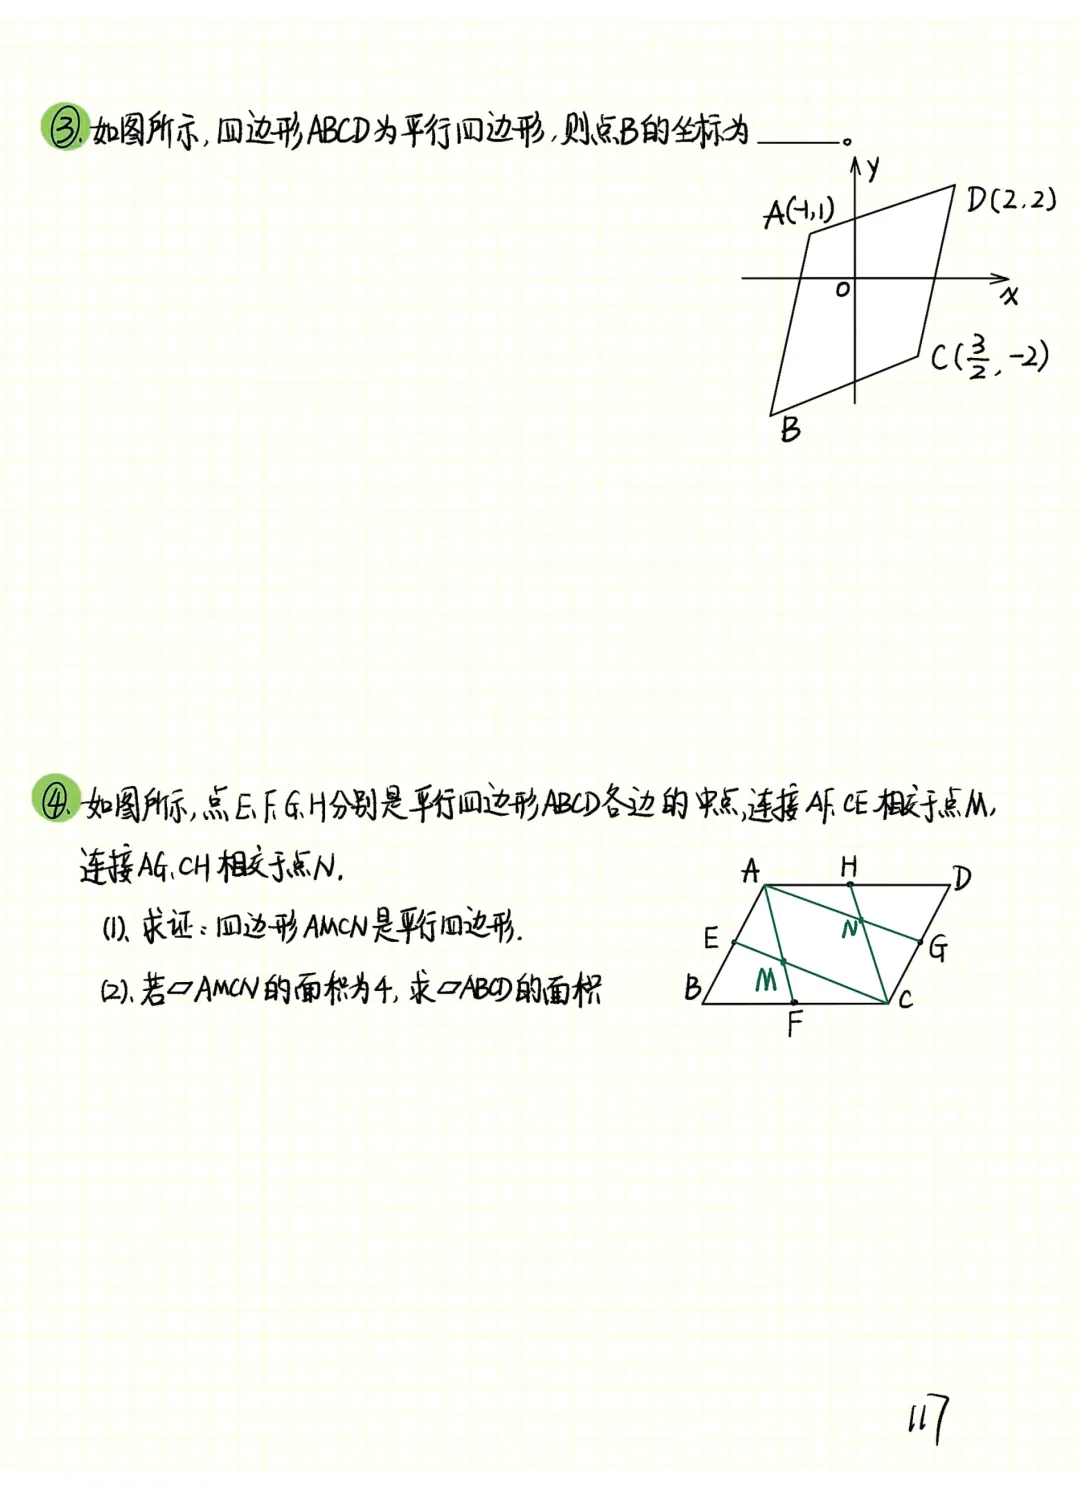 ③. 如图所示,四边形ABCD为平行四边形,则点B的坐标为______。
y
A(-1,1)
D(2,2)
O
x
C(3/2,-2)
B
④. 如图所示,点E、F、G、H分别是平行四边形ABCD各边的中点,连接AF、CE相交于点M,
连接AG、CH相交于点N.
(1)、求证:四边形AMCN是平行四边形.
(2)、若▱AMCN的面积为4,求▱ABCD的面积
A H D
E N G
M
B F C
117